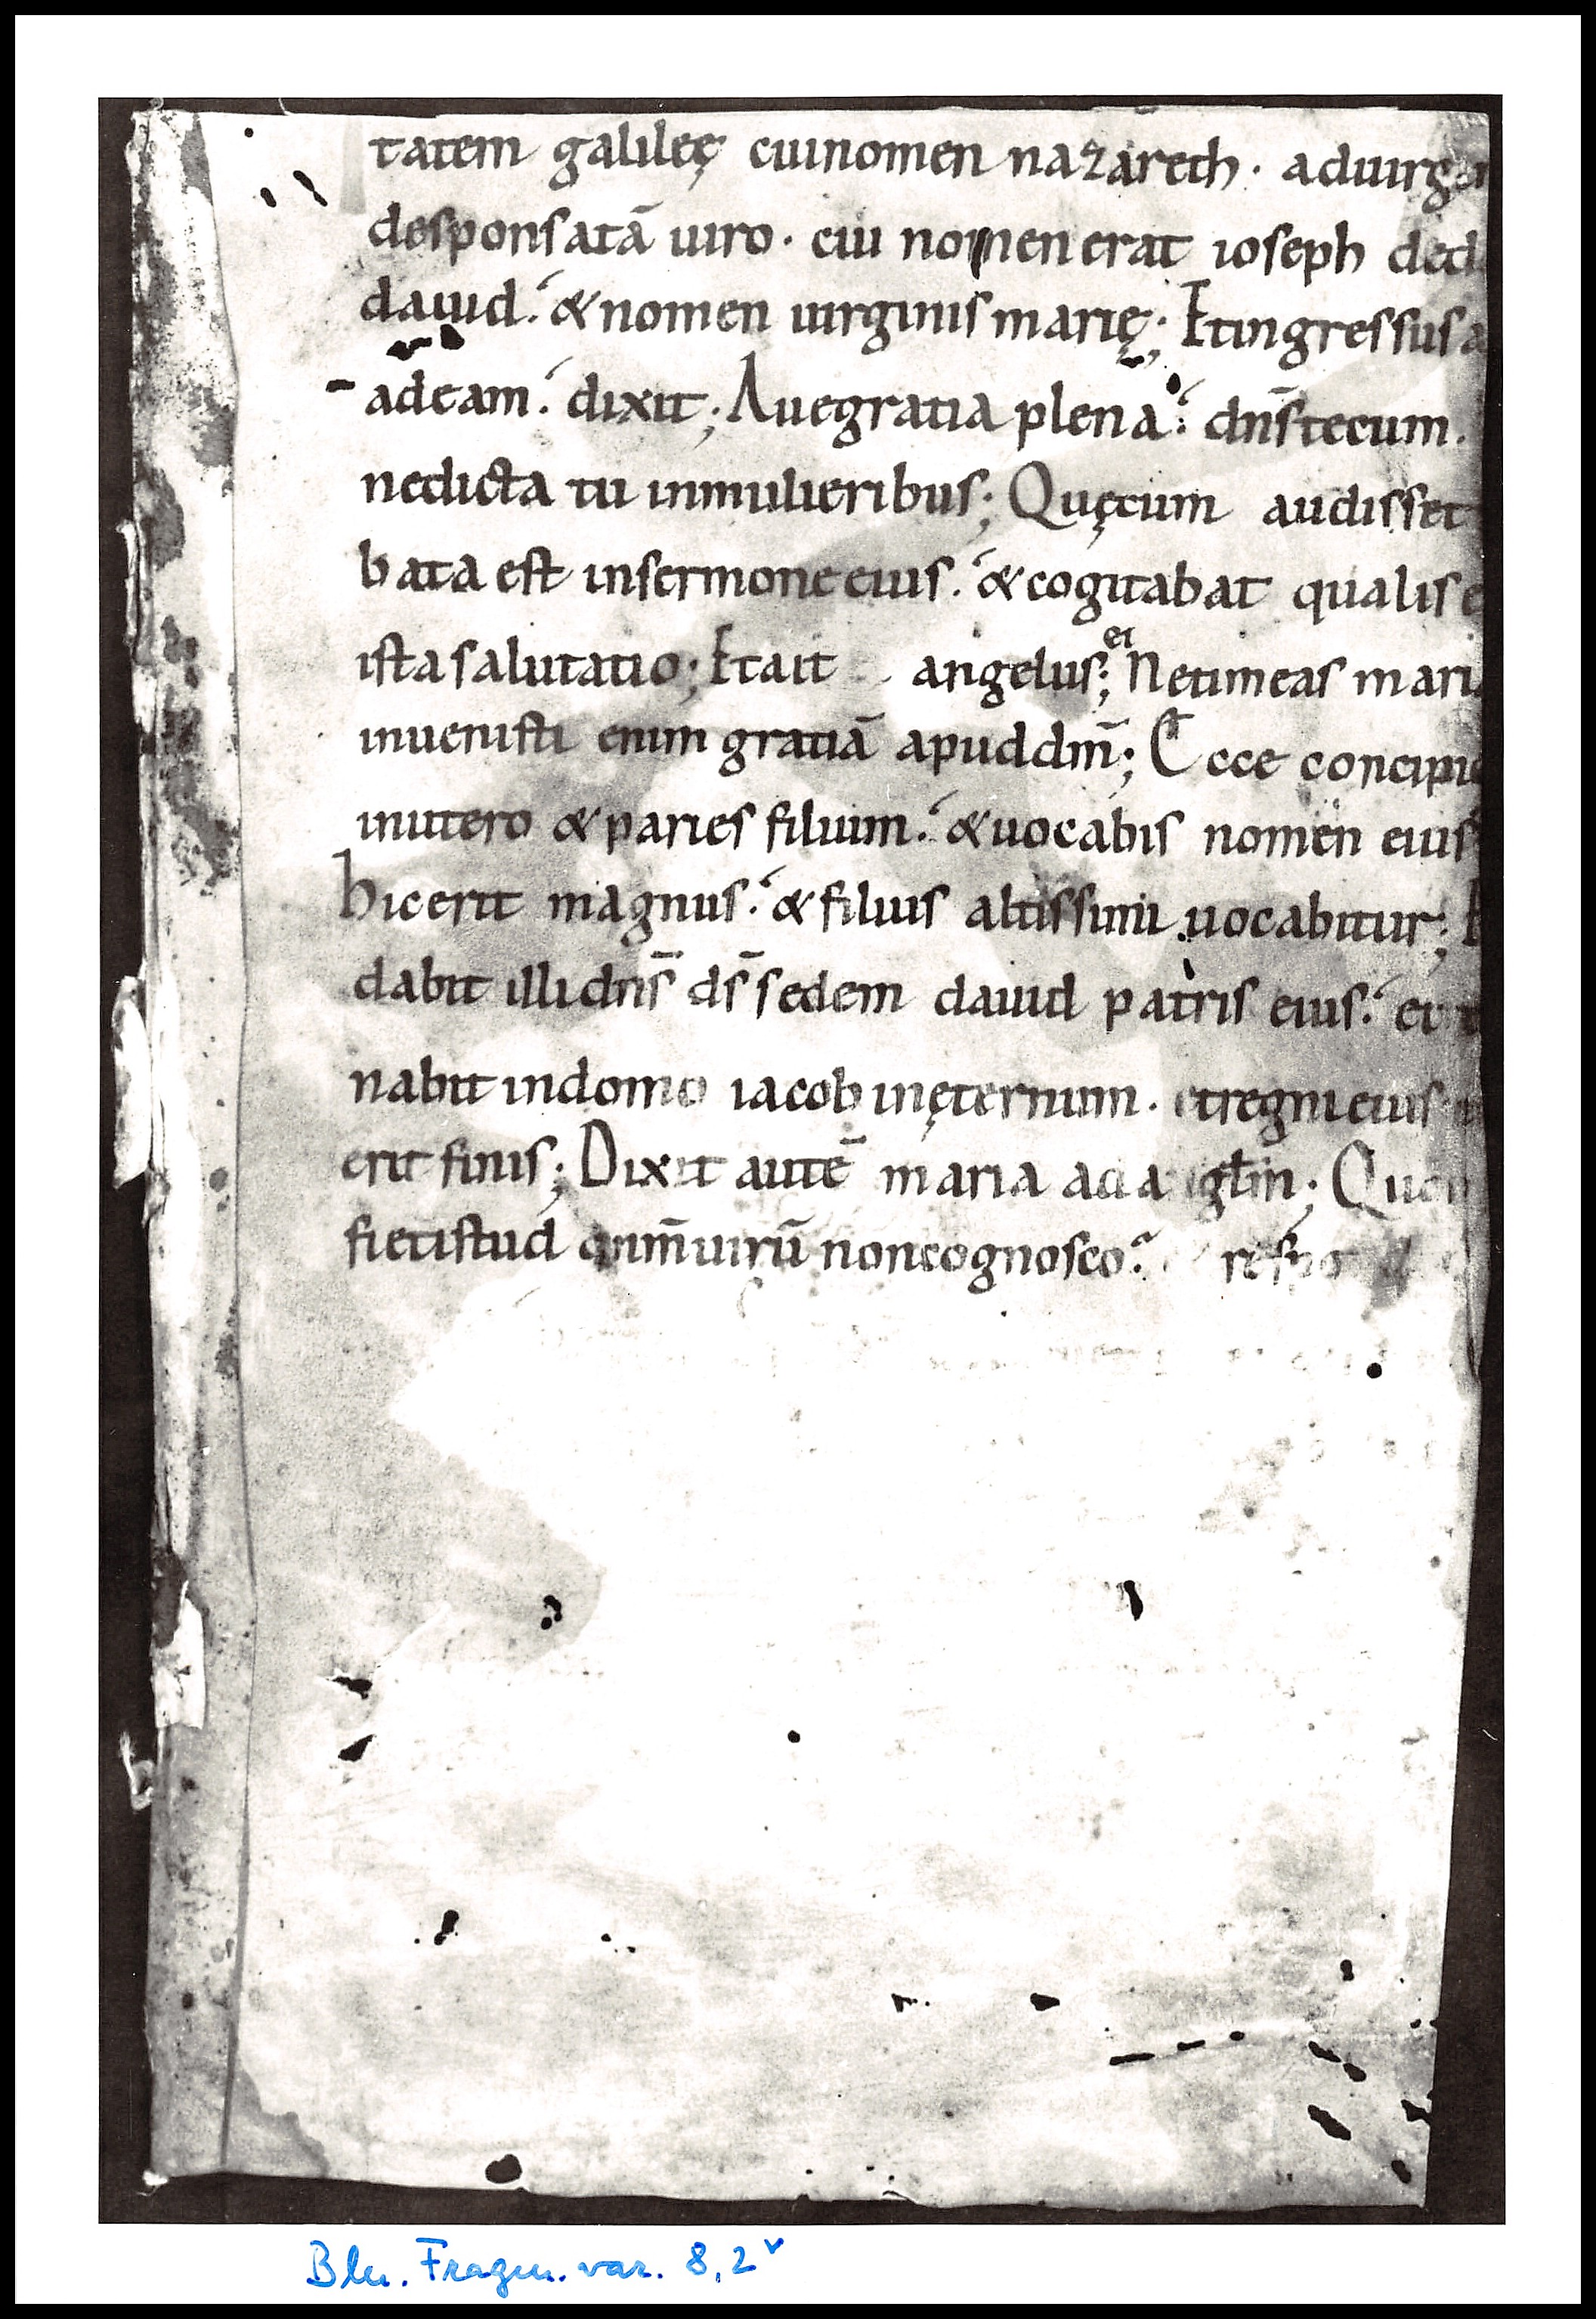 tatem galileę cui nomen nazareth · ad uirg
desponsatā uiro · cui nomen erat ioseph de d
dauid · & nomen uirginis marię; Et ingressus a
ad eam · dixit; Aue gratia plena · dn̄s tecum ·
nedicta tu in mulieribus; Quę cum audisset
bata est in sermone eius · & cogitabat qualis e
ista salutatio; Et ait angelus; ei Ne timeas mari
inuenisti enim gratiā apud dm̄; Ecce concipi
in utero & paries filium · & uocabis nomen eius
hic erit magnus · & filius altissimi uocabitur; E
dabit illi dn̄s ds̄ sedem dauid patris eius · et
nabit in domo iacob in ęternum · et regni eius
erit finis; Dixit autē maria ad anglm̄; Quo
fiet istud qnm̄ uirū non cognosco?
Bln. Fragm. var. 8,2ᵛ